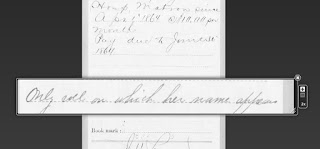 Hosp. Matron since
Apl 1864 @ $10.00 per
month
Pay due to June 30
1864
Only roll on which her name appears
Book mark: